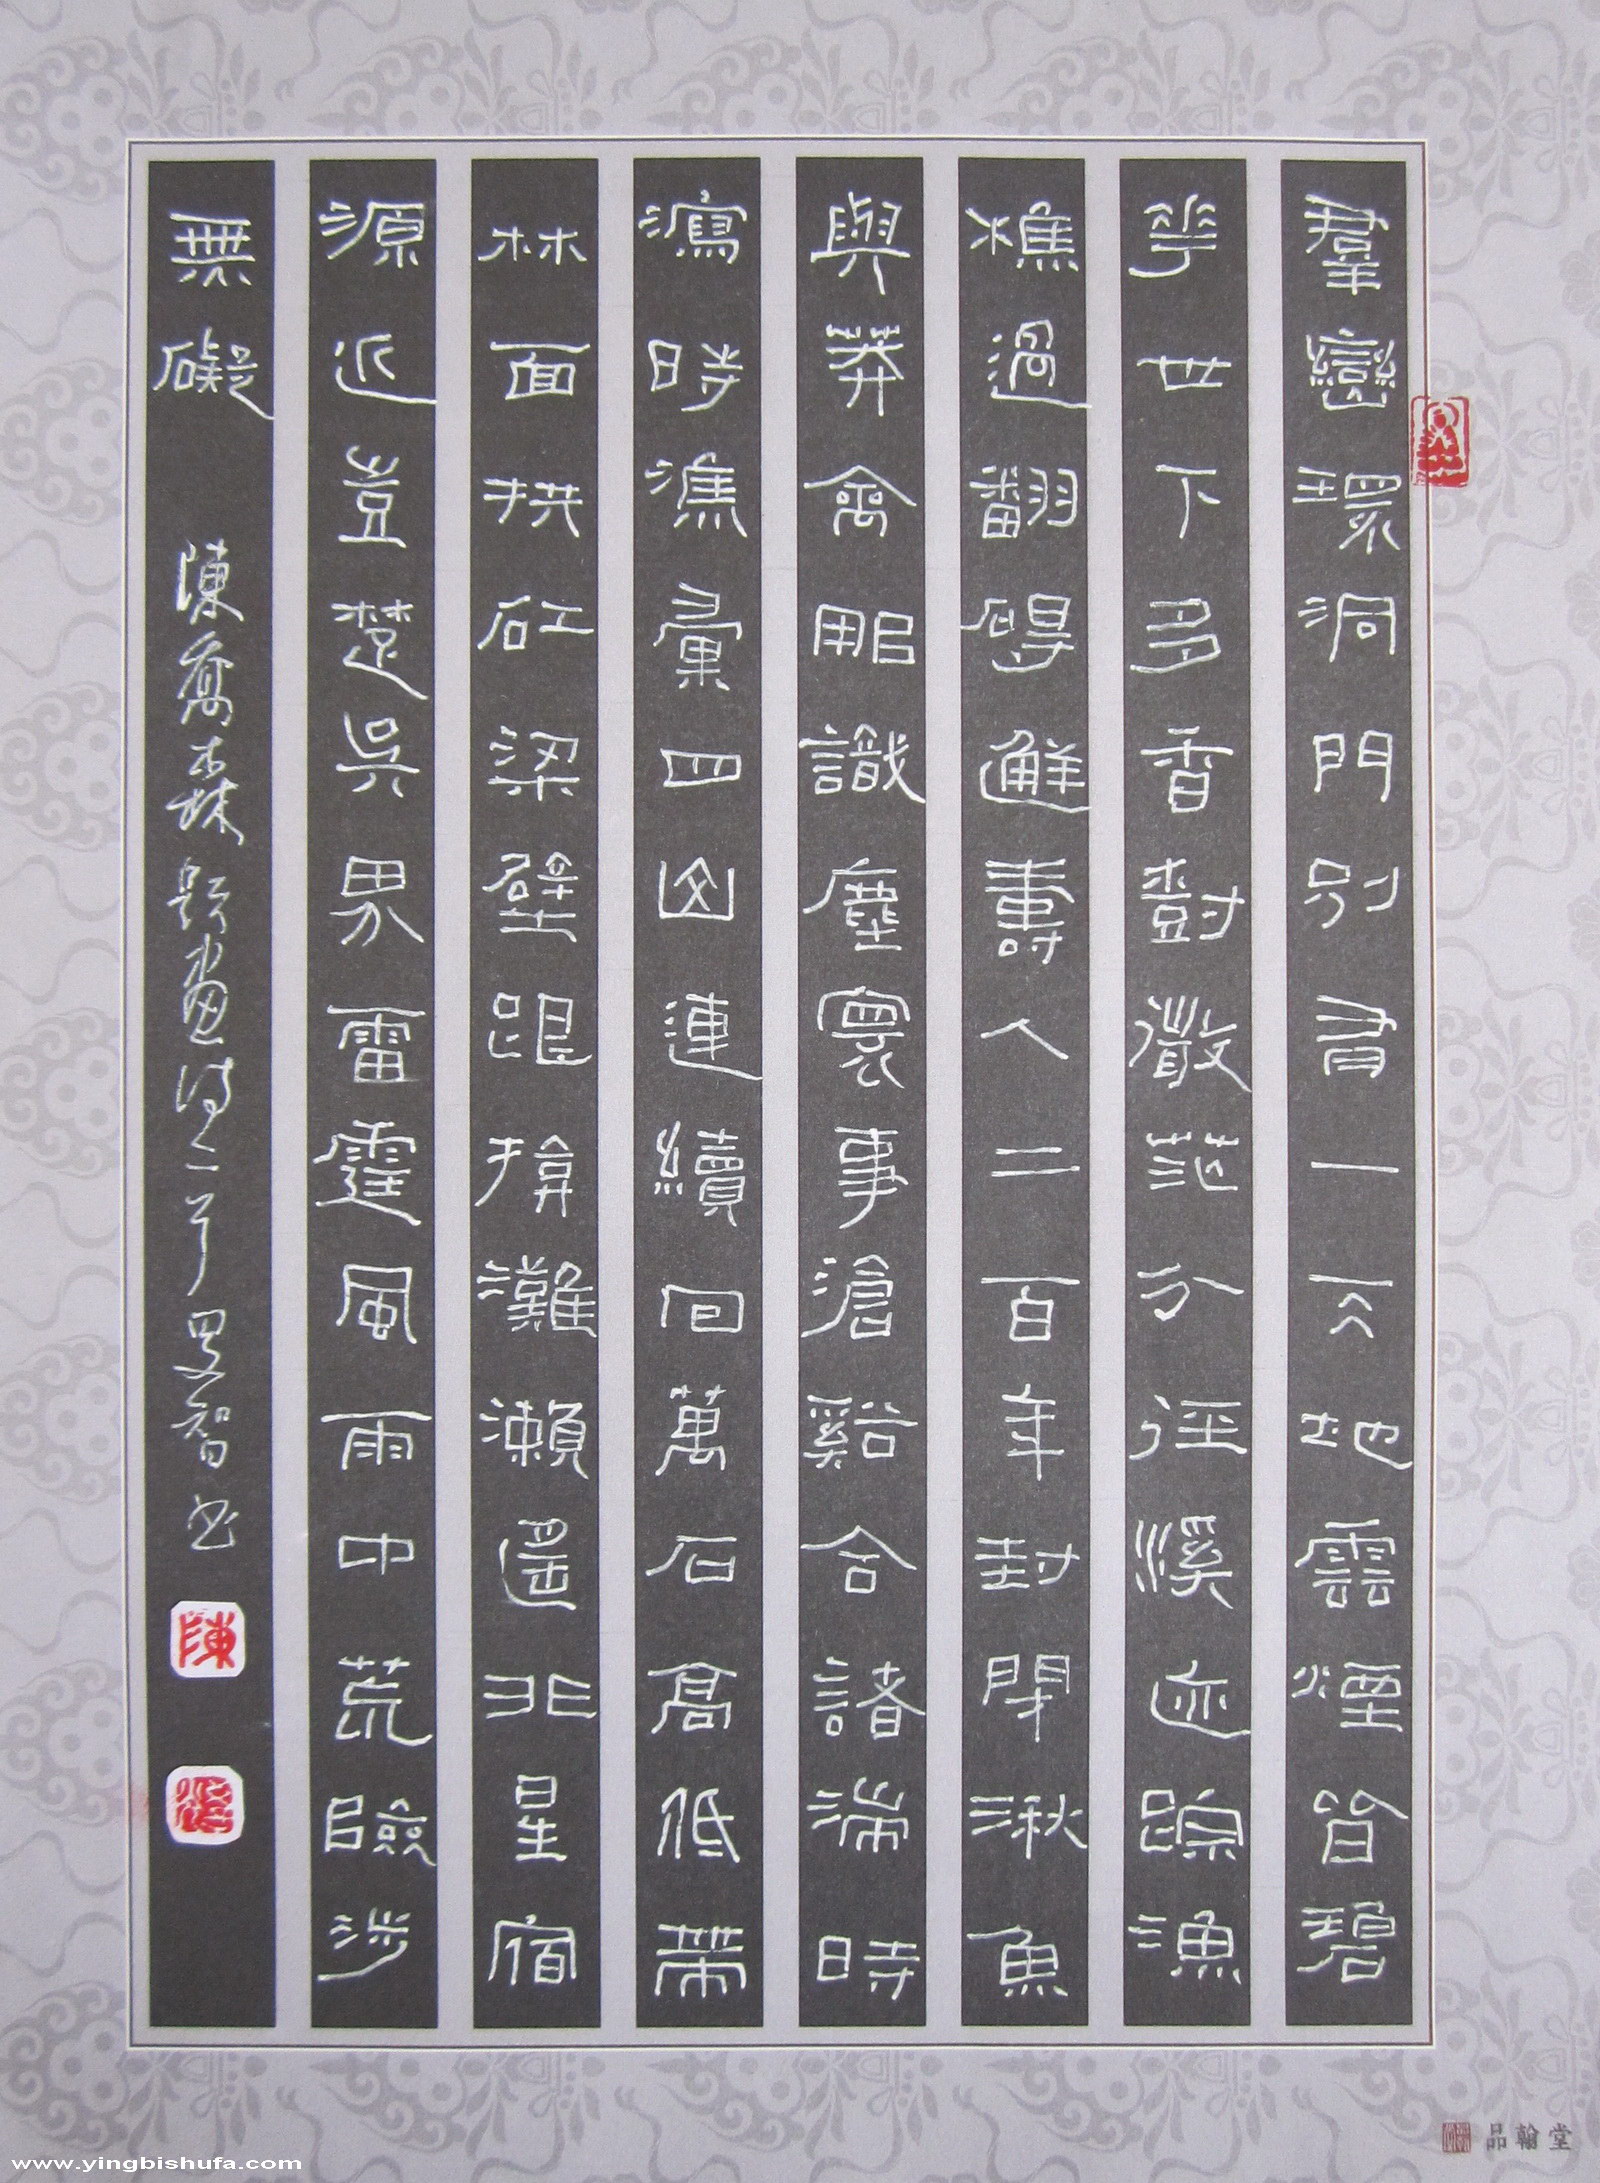 羣巒環洞門別有一天地雲煙皆碧
華世下多香樹徵茫分徑溪迹踪漁
樵過翻碍避壽人二百年封閉湫魚
與莽禽那識塵寰事滄谿合諸湍時
瀉時瀠彙四山連續回萬石高低帶
林面拱矼梁壁跟擠灘瀨遙非星宿
源近豈楚吳界雷霆風雨中荒險涉
無礙
陳喬森題畫詩二首 曼智书
陳
品翰堂
www.yingbishufa.com